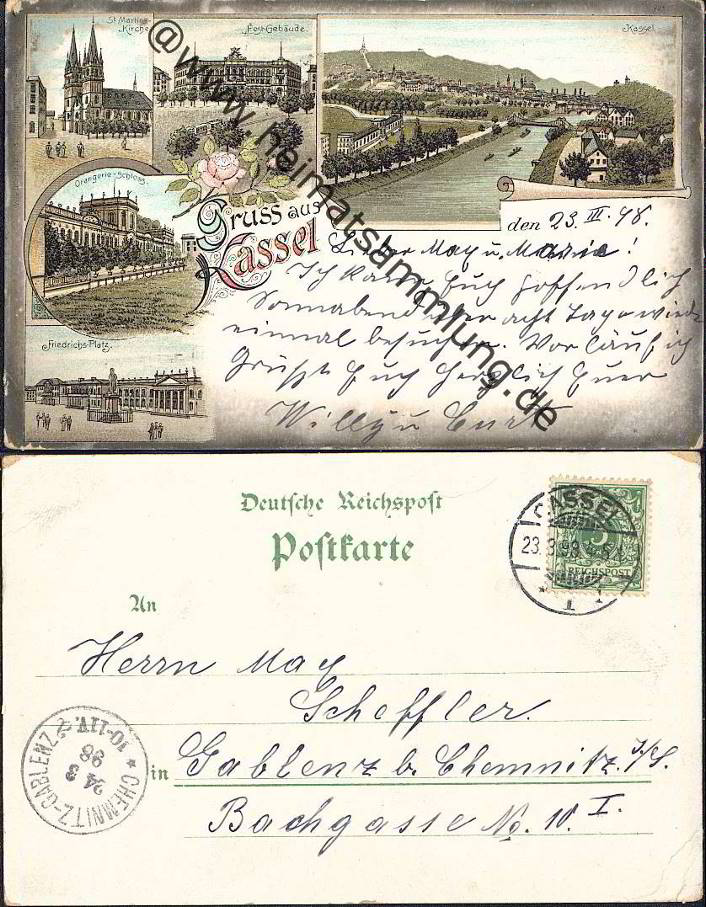 St. Martins-
Kirche
Post-Gebäude.
Kassel
Orangerie-Schloss.
Gruss aus
Kassel
Friedrichs-Platz.
den 23. III. 98.
Lieber Max u. Marie!
Ich kann Euch hoffendlich
Sonnabend über acht Tage wieder
einmal besuchen. Vorläufig
Grüßt Euch herzlich Euer
Willy u Curt
@www.heimatsammlung.de
Deutsche Reichspost
Postkarte
CASSEL
23.3.98
1
5
REICHSPOST
An
Herrn Max
Scheffler.
in Gablenz b. Chemnitz. i/S.
Bachgasse No. 10. I.
CHEMNITZ-GABLENZ
24 3
98
10-11V.